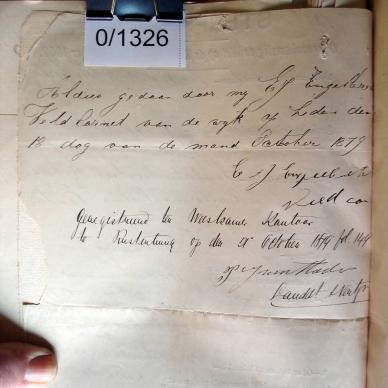 0/1326
Aldus gedaan door my E J Engelbre
Veld Cornet van de wyk op heden den
18 dag van de maand October 1879
E J Engelbre
Veld co
Geregistreerd ten Weeskamer Kantoor
te Rustenburg op den October 1879 fol 144